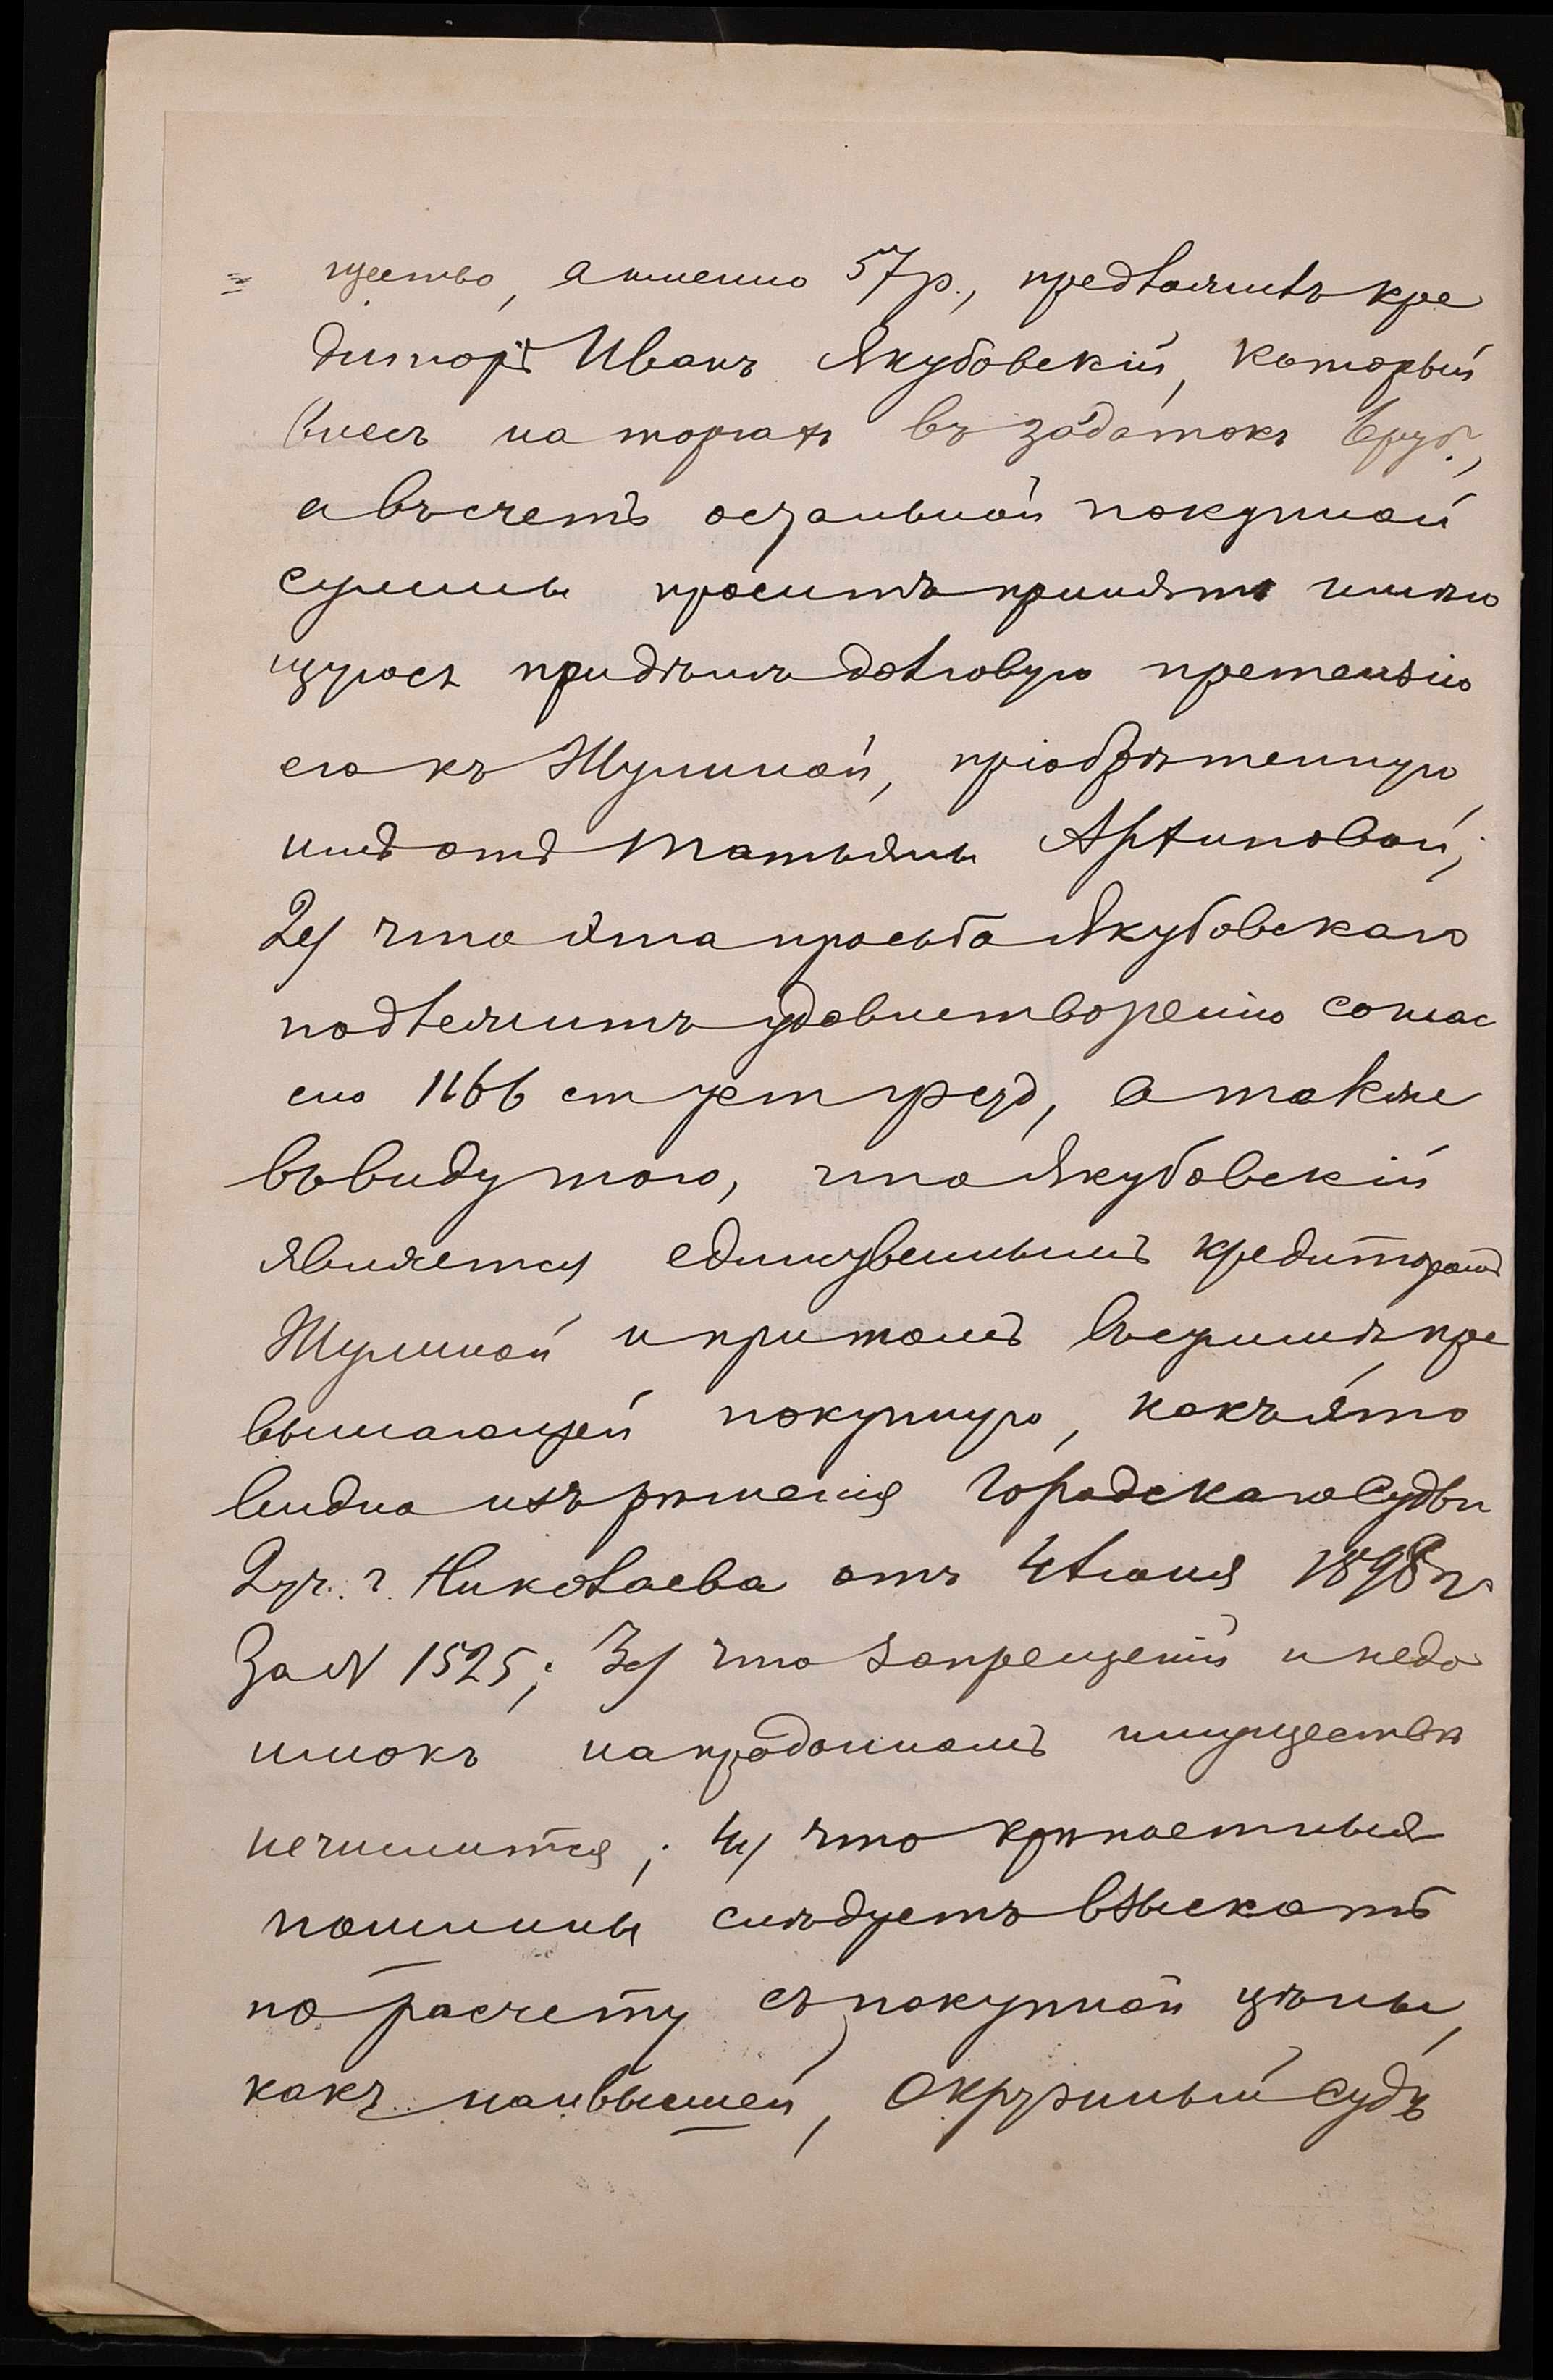 щество, а именно 57 р., предложилъ кре
диторъ Иванъ Якубовскій, который
внесъ на торгахъ въ задатокъ 6 руб.,
а въ счетъ остальной покупной
суммы проситъ принять имѣю
щуюся при дѣлѣ долговую претензію
его къ Шулиной, пріобрѣтенную
имъ отъ Татьяны Архиповой;
2/ что эта просьба Якубовскаго
подлежитъ удовлетворенію соглас
но 1166 ст уст гр суд, а также
въ виду того, что Якубовскій
является единственнымъ кредиторомъ
Шулиной и притомъ въ суммѣ пре
вышающей покупную, какъ это
видно изъ рѣшенія Городского Судьи
2 уч. г. Николаева отъ 4 Іюня 1898 г.
за N 1525; 3/ что запрещеній и недо
имокъ на проданномъ имуществѣ
не числится; 4/ что крѣпостныя
пошлины слѣдуетъ взыскать
по расчету съ покупной цѣны,
какъ наивысшей, Окружный Судъ